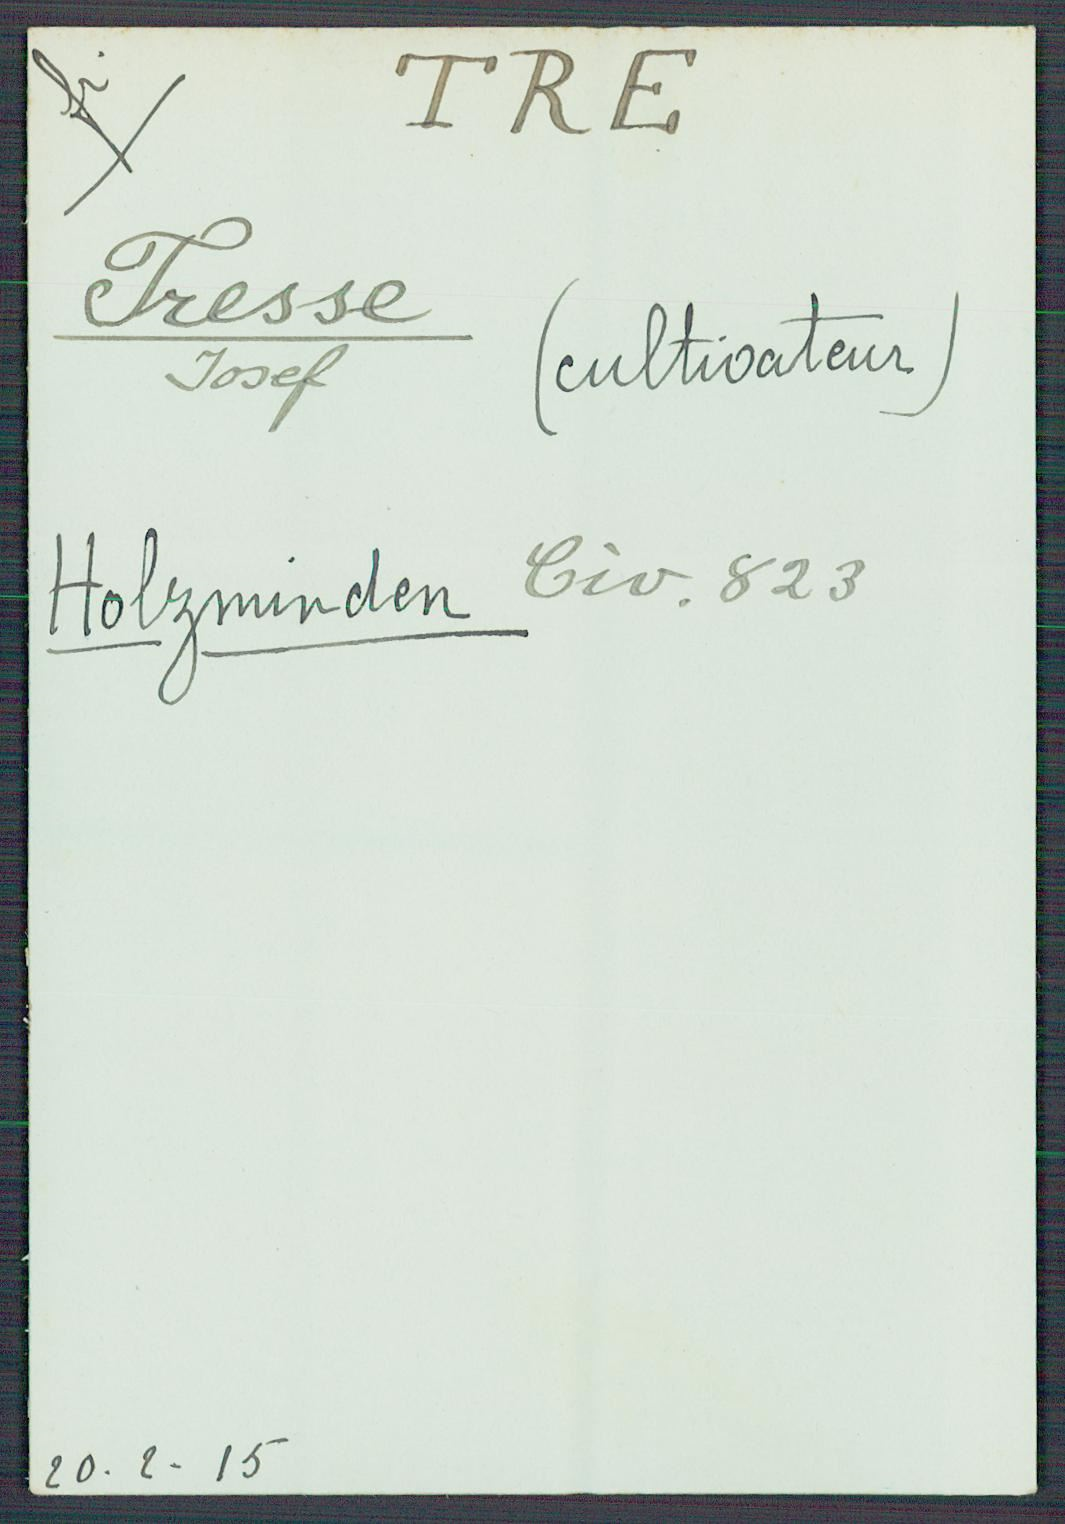 TRE
Tresse
Josef
(cultivateur)
Holzminden Civ. 823
20. 2 - 15